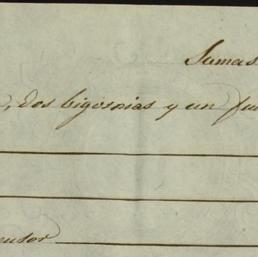 Sumas
, dos bigornias y un fu
ensor